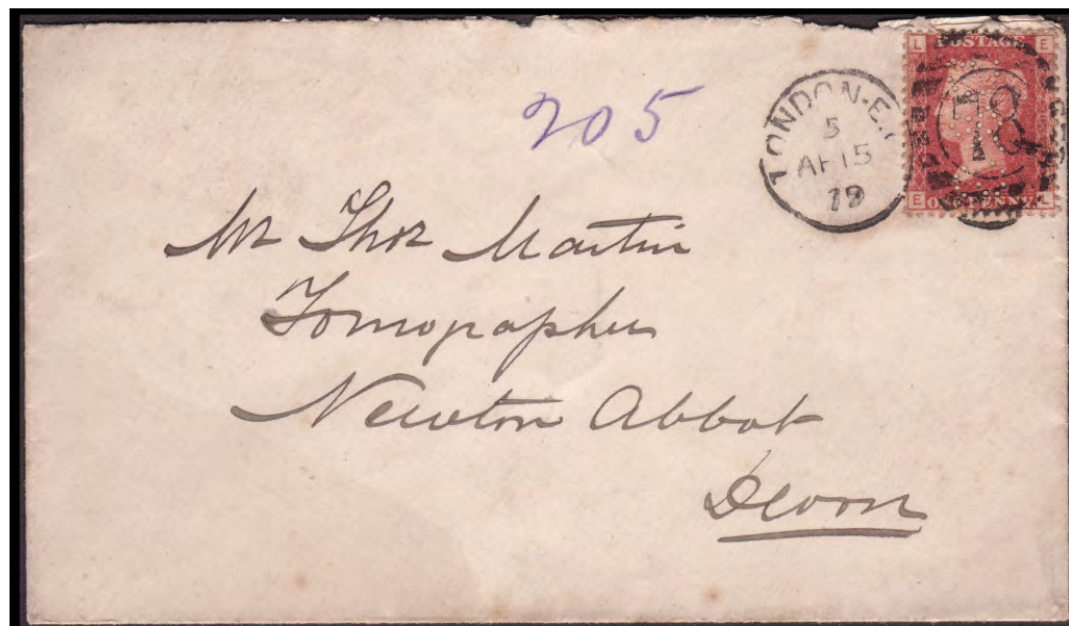 205
LONDON·E.C
5
AP 15
79
L POSTAGE E
E ONE PENNY L
Mr Thos Martin
Newton Abbot
Devon